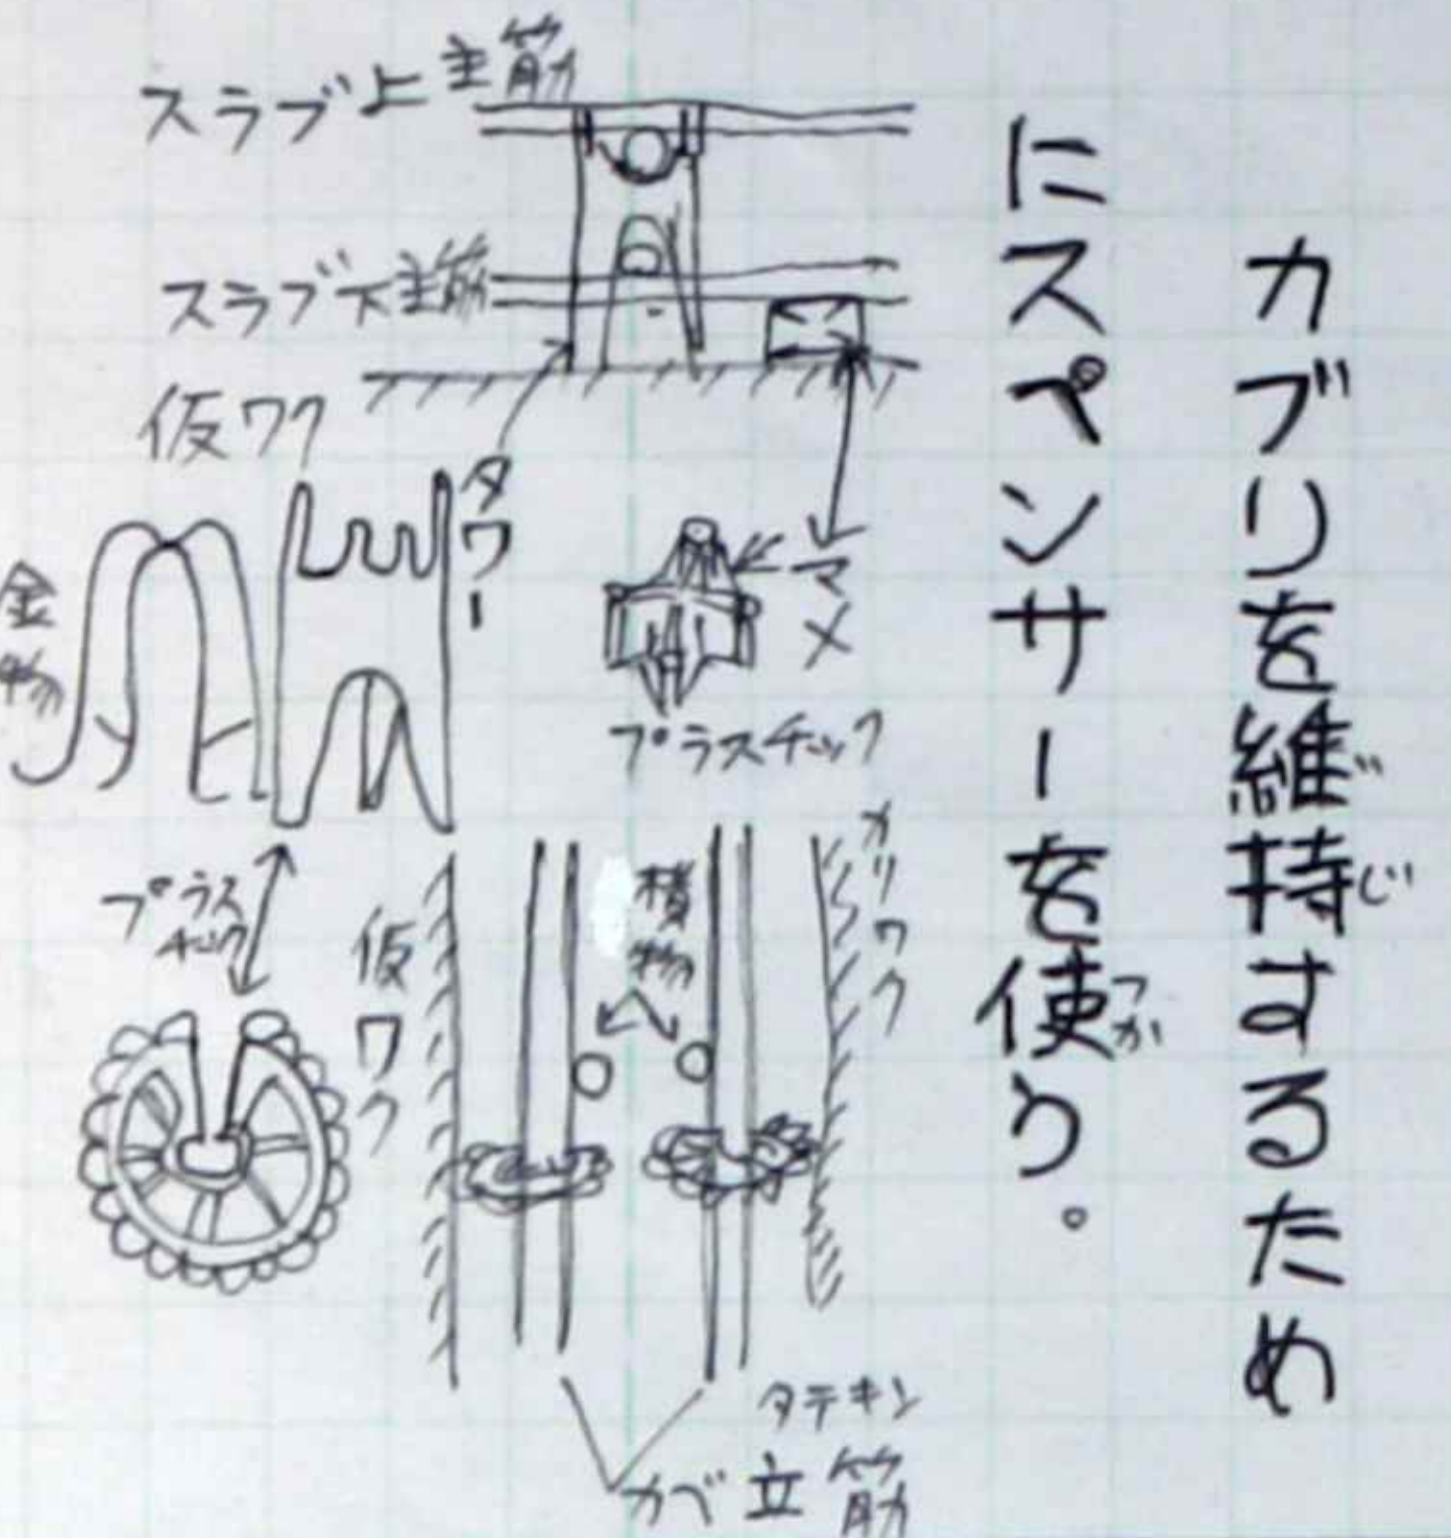 カブリを維持するため
にスペンサーを使う。
じ
つか
スラブ上主筋
スラブ下主筋
仮ワク
タワー
金物
マメ
プラスチック
プラスチック
仮ワク
カリワク
タテキン
カベ立筋